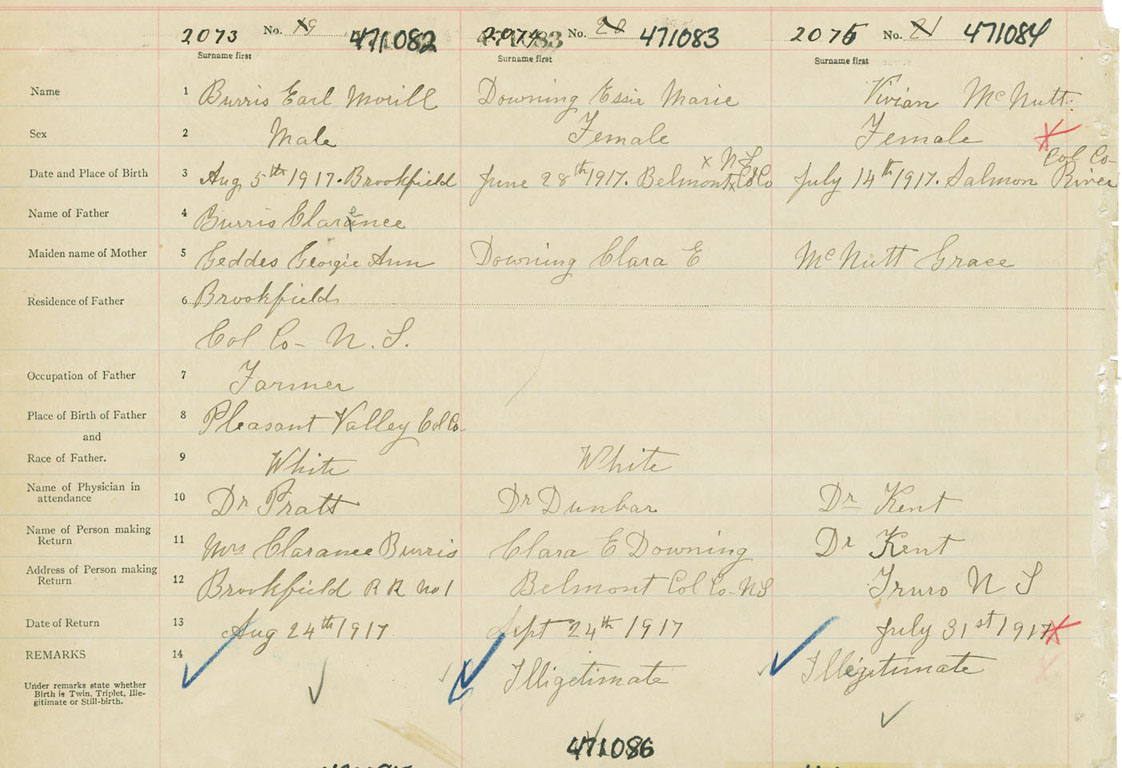 2073 No. 19 471082 2074 471083 No. 20 471083 2075 No. 21 471084
Surname first Surname first Surname first
Name 1 Burris Earl Morill Downing Essie Marie Vivian McNutt.
Sex 2 Male Female Female X
x N S Col Co
Date and Place of Birth 3 Aug 5th 1917. Brookfield June 28th 1917. Belmont Col Co July 14th 1917. Salmon River
Name of Father 4 Burris Clarence
Maiden name of Mother 5 Geddes Georgie Ann Downing Clara E McNutt Grace
Residence of Father 6 Brookfield
Col Co- N. S.
Occupation of Father 7 Farmer
Place of Birth of Father 8 Pleasant Valley Col Co
and
Race of Father. 9 White White
Name of Physician in
attendance 10 Dr Pratt Dr Dunbar Dr Kent
Name of Person making
Return 11 Mrs Clarance Burris Clara E Downing Dr Kent
Address of Person making
Return 12 Brookfield R R No 1 Belmont Col Co- N S Truro N S
Date of Return 13 Aug 24th 1917 Sept 24th 1917 July 31st 1917 X
REMARKS 14 Illigetimate Illegitimate
Under remarks state whether
Birth is Twin, Triplet, Ille-
gitimate or Still-birth.
471086